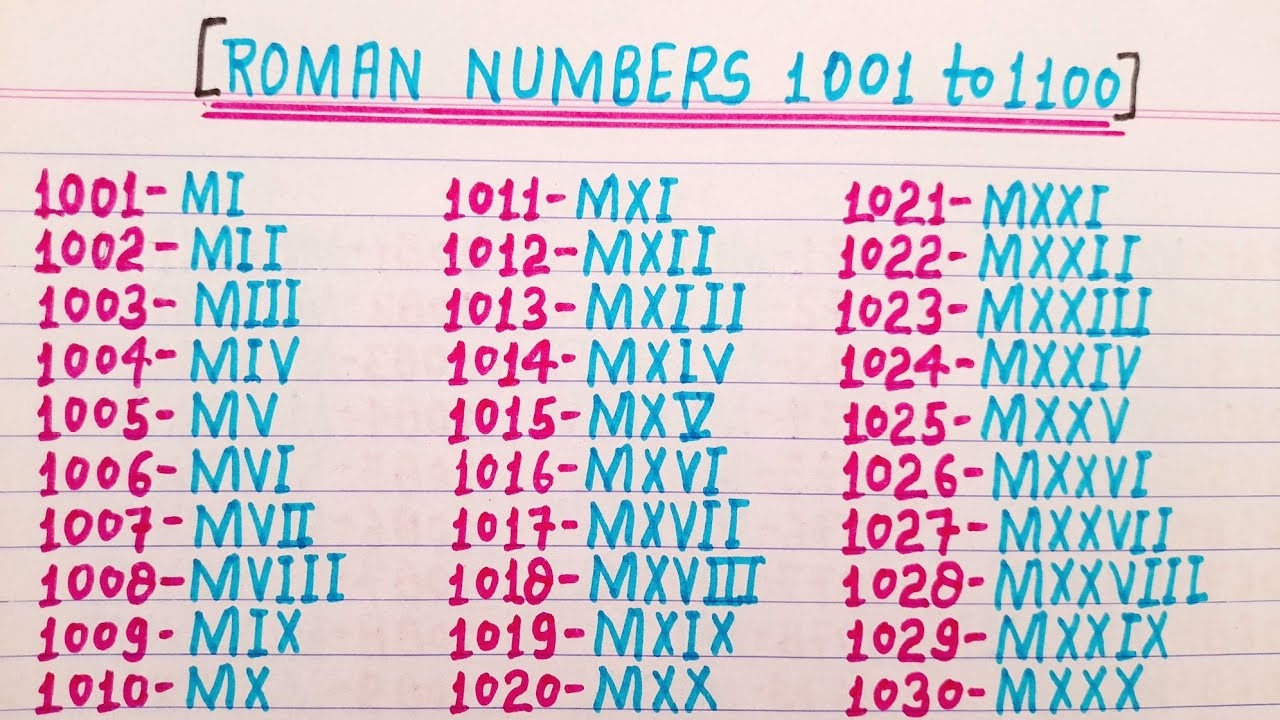 [ROMAN NUMBERS 1001 to 1100]
1001- MI
1002- MII
1003- MIII
1004- MIV
1005- MV
1006- MVI
1007- MVII
1008- MVIII
1009- MIX
1010- MX
1011- MXI
1012- MXII
1013- MXIII
1014- MXIV
1015- MXV
1016- MXVI
1017- MXVII
1018- MXVIII
1019- MXIX
1020- MXX
1021- MXXI
1022- MXXII
1023- MXXIII
1024- MXXIV
1025- MXXV
1026- MXXVI
1027- MXXVII
1028- MXXVIII
1029- MXXIX
1030- MXXX